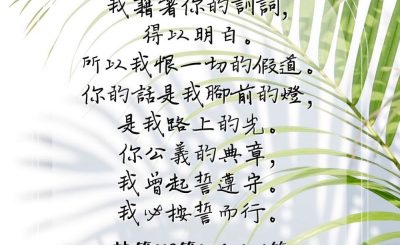 我藉著你的訓詞，
得以明白。
所以我恨一切的假道。
你的話是我腳前的燈，
是我路上的光。
你公義的典章，
我曾起誓遵守。
我必按誓而行。